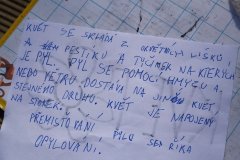 KVĚT SE SKLÁDÁ Z OKVĚTNÍCH LÍSKŮ
A PESTÍKU A TYČINEK NA KTERÝCH
JE PYL. PYL SE POMOCÍ HMYZU A
NEBO VĚTRU DOSTÁVÁ NA JINÝ KVĚT
STEJNÉHO DRUHU. KVĚT JE NAPOJENÝ
NA STONEK.
PŘEMISTOVÁNÍ PYLU SE ŘÍKÁ
OPYLOVÁNÍ.